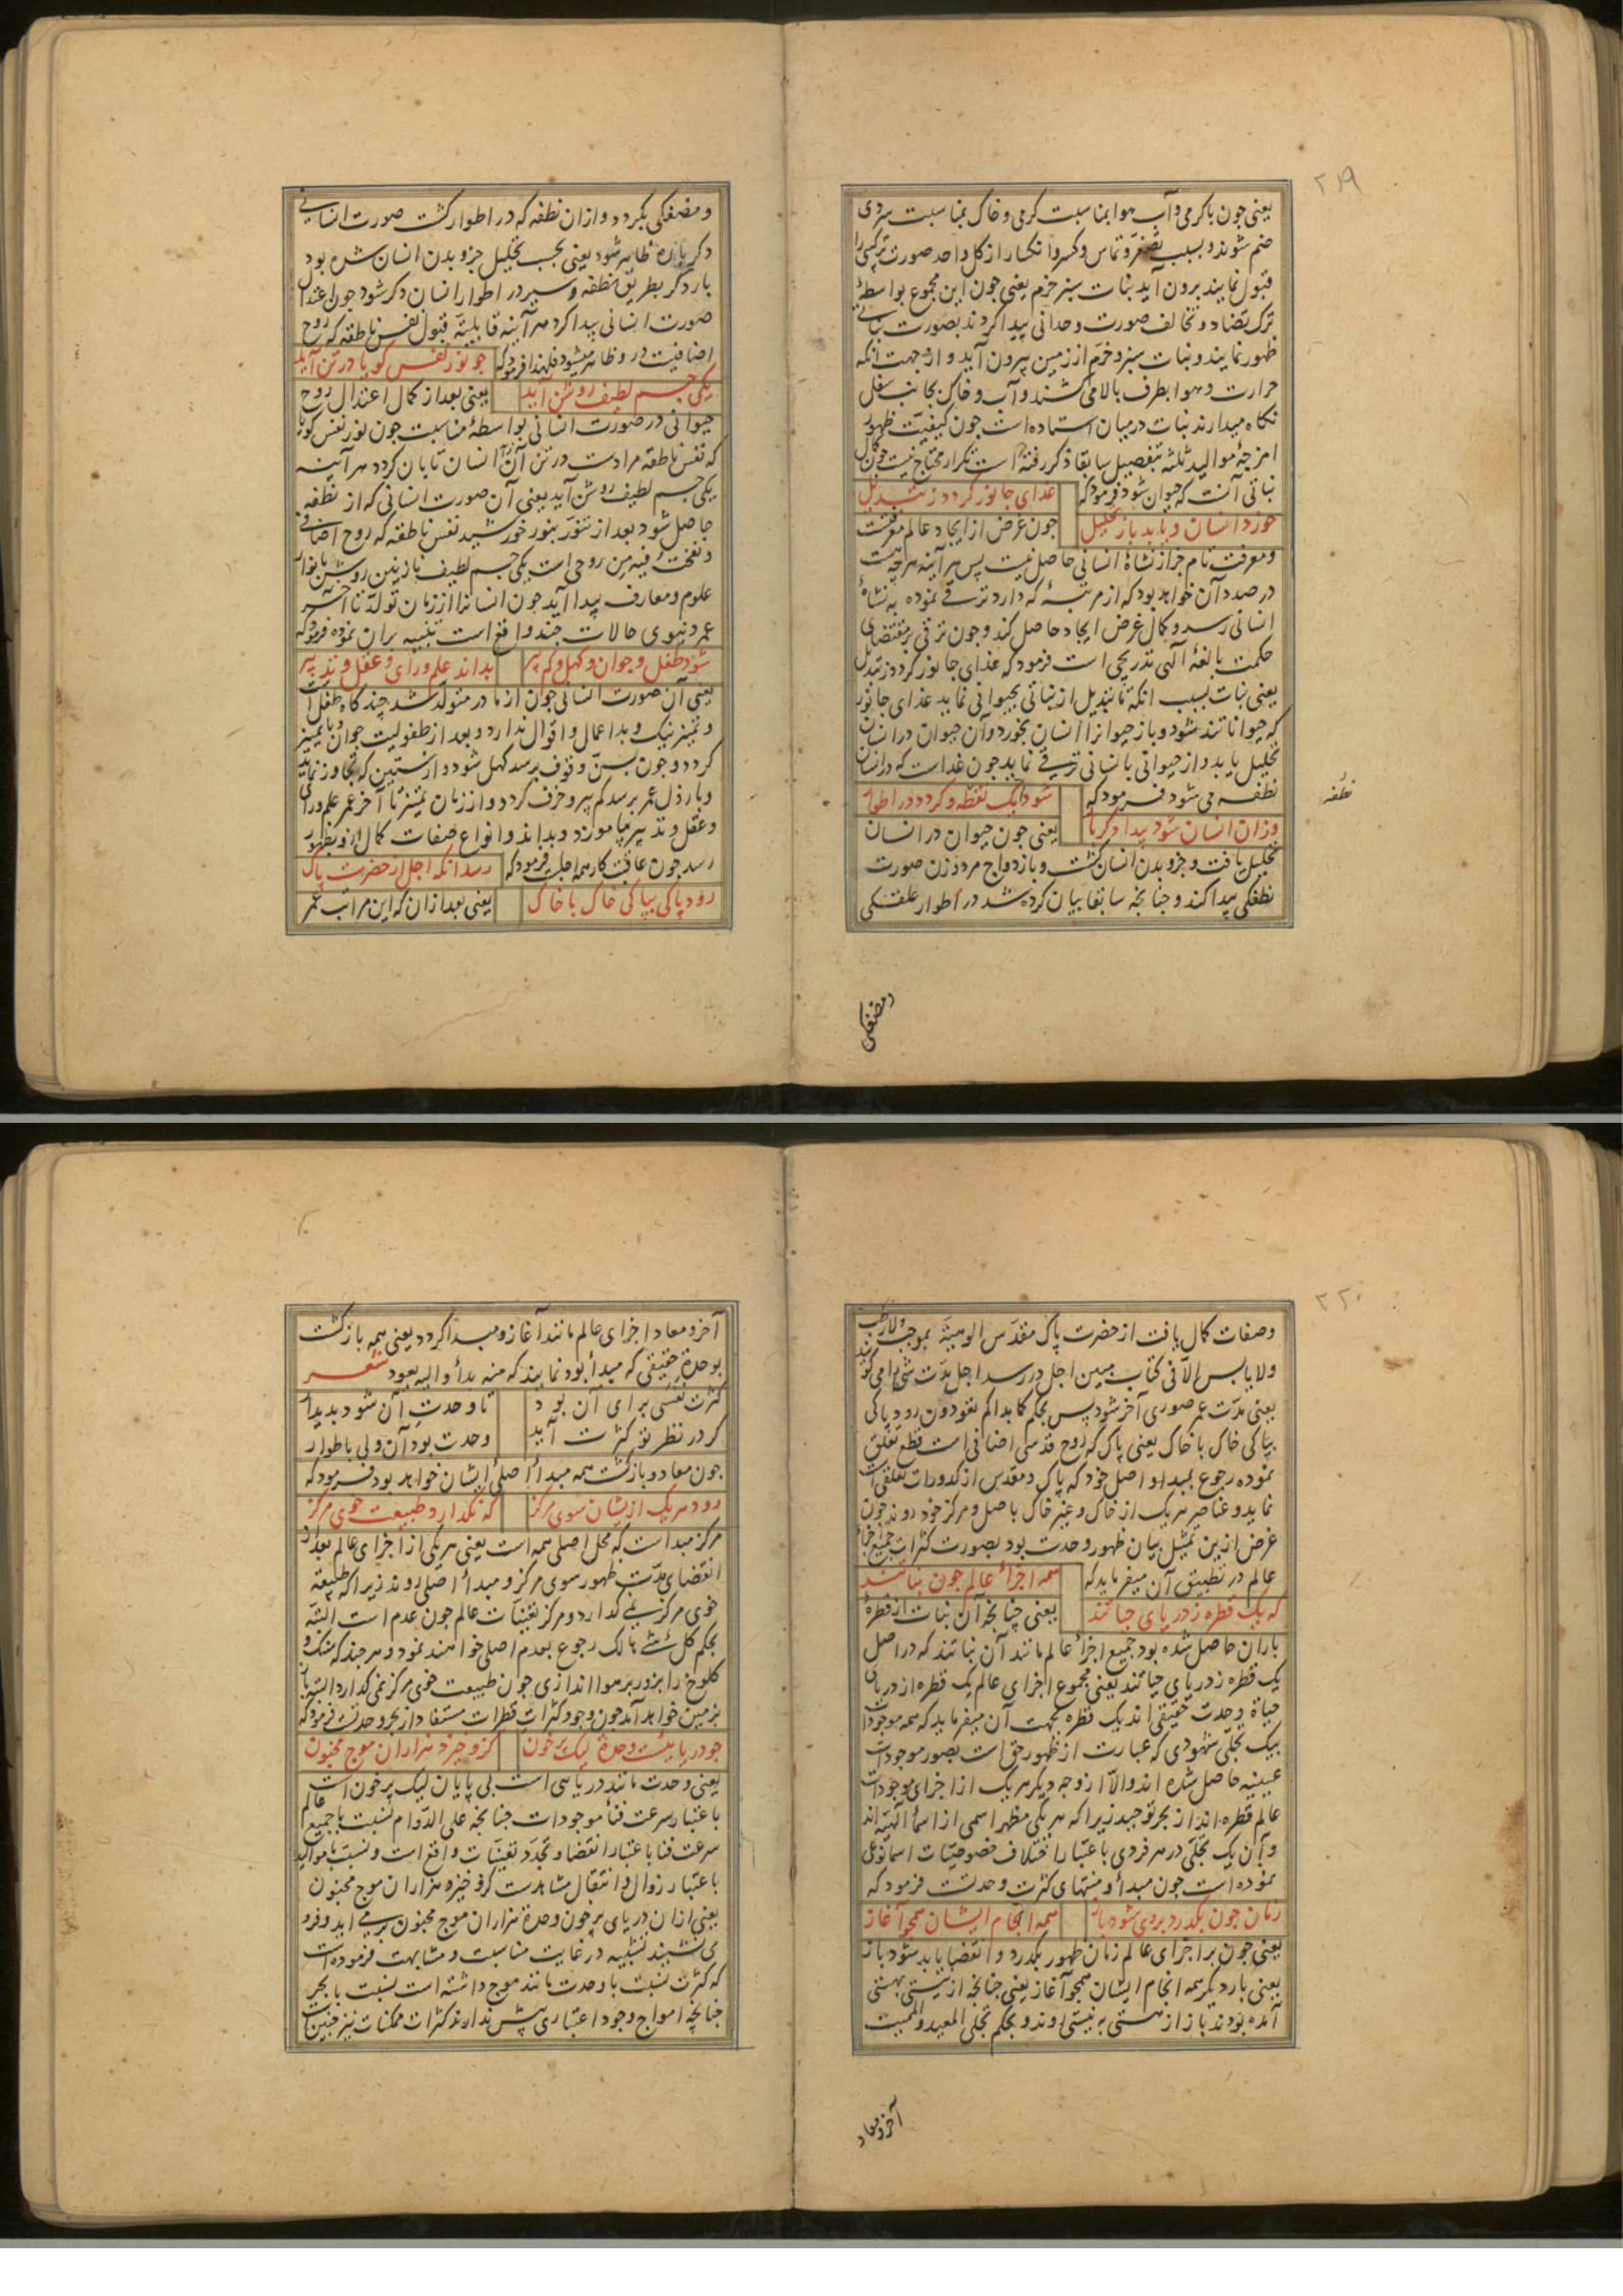 ۲۱۹
یعنی چون با کرمی و آب هوا بمناسبت کرمی و خاک بمناسبت سردی
ضم شوند و بسبب تصغر و تماس و کسر و انکسار از کل واحد صورت ترکیبی را
قبول نمایند برون آید نبات سبز خرم یعنی چون این مجموع بواسطهٔ
ترک تضاد و تخالف صورت وحدانی پیدا کردند بصورت نباتی
ظهور نمایند و نبات سبز و خرم از زمین بیرون آید و از جهت آنکه
حرارت و هوا بطرف بالا می کشند و آب و خاک بجانب سفل
نکاه میدارند نبات در میان استاده است چون کیفیت ظهور
امزجهٔ موالید ثلثه بتفصیل سابقا ذکر رفته است تکرار محتاج نیست و چون کمال
نباتی آنست که حیوان شود فرمود که غذای جانور کردد ز تبدیل
خورد انسان و یابد باز تحلیل چون غرض از ایجاد عالم معرفتست
و معرفت تام جز از نشاهٔ انسانی حاصل نیست پس هر آینه هر چه هست
در صدد آن خواهد بود که از مرتبهٔ که دارد ترقی نموده به نشاهٔ
انسانی رسد و کمال غرض ایجاد حاصل کند و چون ترقی بر مقتضای
حکمت بالغهٔ الهی تدریجی است فرمود که غذای جانور کردد ز تبدیل
یعنی نبات بسبب آنکه تا تبدیل از نباتی بحیوانی نماید غذای جانور
که حیوانات‌ند شود و باز حیوانرا انسان بخورد و آن حیوان در انسان
تحلیل یابد و از حیوانی بانسانی ترقی نماید چون غداست که در انسان
نطفه می شود فرمود که شود یک نطفه و کردد در اطوار
وزان انسان شود پیدا دکر بار یعنی چون حیوان در انسان
تحلیل یافت و جزو بدن انسان کشت و بازدواج مرد و زن صورت
نطفکی پیدا کند و چنانچه سابقا بیان کرده شد در اطوار علقکی
نطفه
ومضغکی
ومضغکی بکردد و از ان نطفه که در اطوار کشت صورت انسانی
دکر باره ظاهر شود یعنی بحسب تحلیل جزو بدن انسان شده بود
بار دکر بطریق نطفه و سیر در اطوار انسان دکر شود چون اعتدال
صورت انسانی پیدا کرد هر آینه قابلیة قبول نفس ناطقه که روح
اضافیست در و ظاهر میشود فلهذا فرمود که چو نور نفس کویا در تن آید
یکی جسم لطیف روشن آید یعنی بعد از کمال اعتدال روح
حیوانی در صورت انسانی بواسطهٔ مناسبت چون نور نفس کویا
که نفس ناطقه مرادست در تن آن انسان تابان کردد هر آینه
یکی جسم لطیف روشن آید یعنی آن صورت انسانی که از نطفه
حاصل شود بعد از تنور بنور خورشید نفس ناطقه که روح اضافی
و نفخت فیه من روحی است یکی جسم لطیف نازنین روشن بانوار
علوم و معارف پیدا آید چون انسانرا از زمان تولد تا آخر
عمر دنیوی حالات چند واقع است تنبیه بران نموده فرمود که
شود طفل و جوان و کهل و کم پیر بداند علم و رای و عقل و تدبیر
یعنی آن صورت انسانی چون از مادر متولد شد چندگاه طفل است
و تمیز نیک و بد اعمال و اقوال ندارد و بعد از طفولیت جوان با تمییز
کردد و چون بسن وقوف برسد کهل شود و از ستین که تجاوز نماید
و بارذل عمر برسد کم پیر و خرف کردد و از زمان تمییز تا آخر عمر علم و رای
و عقل و تدبیرها موزد و بداند و انواع صفات کمال ازو بظهور
رسد چون عاقبت کار همه اجلست فرمود که رسد آنکه اجل از حضرت پاک
رود پاکی بپاکی خاک با خاک یعنی بعد از ان که این مراتب عمر
۲۲۰
وصفات کمال یافت از حضرت پاک مقدس الوهیة بموجب ولا رطب
ولا یابس الا فی کتاب مبین اجل در رسد اجل مدت شیٔ را می کویند
یعنی مدت عمر صوری آخر شود پس بحکم کما بداکم تعودون رود پاکی
بپاکی خاک با خاک یعنی پاک که روح قدسی اضافی است قطع تعلق
نموده رجوع بمبدا و اصل خود که پاک و مقدس از کدورات تعلقی است
نماید و عناصر هر یک از خاک و غیر خاک باصل و مرکز خود روند چون
غرض ازین تمثیل بیان ظهور وحدت بود بصورت کثرات جمیع اجزاء
عالم در تطبیق آن میفرماید که همه اجزاء عالم چون نباتند
که یک قطره ز دریای حیاتند یعنی چنانچه آن نبات از قطرهٔ
باران حاصل شده بود جمیع اجزاء عالم مانند آن نباتند که در اصل
یک قطره ز دریای حیاتند یعنی مجموع اجزای عالم یک قطره از دریای
حیاة وحدت حقیقی اند یک قطره بجهت آن میفرماید که همه موجودات
بیک تجلی شهودی که عبارت از ظهور حق است بصور موجودات
عینیه حاصل شده اند والا از وجه دیکر هر یک از اجزای موجودات
عالم قطره اند از بحر توحید زیرا که هر یکی مظهر اسمی از اسماء الهیه اند
و آن یک تجلی در هر فردی باعتبار اختلاف خصوصیات اسما نوعی
نموده است چون مبدأ و منتهای کثرت وحدتست فرمود که
زمان چون بکذرد بر وی شود باز همه انجام ایشان همچو آغاز
یعنی چون بر اجزای عالم زمان ظهور بکذرد و انقضا یابد شود باز
یعنی بار دیکر همه انجام ایشان همچو آغاز یعنی چنانچه از نیستی بهستی
آمده بودند باز از هستی به نیستی روند و بحکم تجلی المعید والممیت
آخر ومعاد
آخر و معاد اجزای عالم مانند آغاز و مبدا کردد یعنی همه بازکشت
بوحدة حقیقی که مبدأ بود نمایند که منه بدأ والیه یعود شعر
کثرت نفسی برای آن بود تا وحدت آن شود پدیدار
کر در نظر تو کثرت آید وحدت بود آن ولی باطوار
چون معاد و بازکشت همه مبدأ اصلی ایشان خواهد بود فرمود که
رود هر یک ازیشان سوی مرکز که نکذارد طبیعت خوی مرکز
مرکز مبدا است که محل اصلی همه است یعنی هر یکی از اجزای عالم بعد از
انقضای مدت ظهور سوی مرکز و مبدأ اصلی روند زیرا که طبیعة
خوی مرکز نمی کذارد و مرکز تعینات عالم چون عدم است البته
بحکم کل شیٔ هالک رجوع بعدم اصلی خواهند نمود و هر چند که سنک و
کلوخ را بزور بر هوا اندازی چون طبیعت خوی مرکز نمی کذارد البته باز
بزمین خواهد آمد چون وجود کثرات قطرات مستفاد از بحر وحدتست فرمود که
چو دریاییست وحدة لیک پرخون کزو خیزد هزاران موج مجنون
یعنی وحدت مانند دریایی است بی پایان لیک پرخون است
باعتبار سرعت فناء موجودات چنانچه علی الدوام نسبت با جمیع عالم
سرعت فنا باعتبار انقضا و تجدد تعینات واقع است و نسبت با موالید
باعتبار زوال و انتقال مشاهدست کزو خیزد هزاران موج مجنون
یعنی از ان دریای پرخون وحدة هزاران موج مجنون بر می آید و فرو
می نشیند تشبیه در غایت مناسبت و مشابهت فرموده است
که کثرت نسبت با وحدت مانند موج داشته است نسبت با بحر
چنانچه امواج وجود اعتباری بیش ندارند کثرات ممکنات نیز چنین است